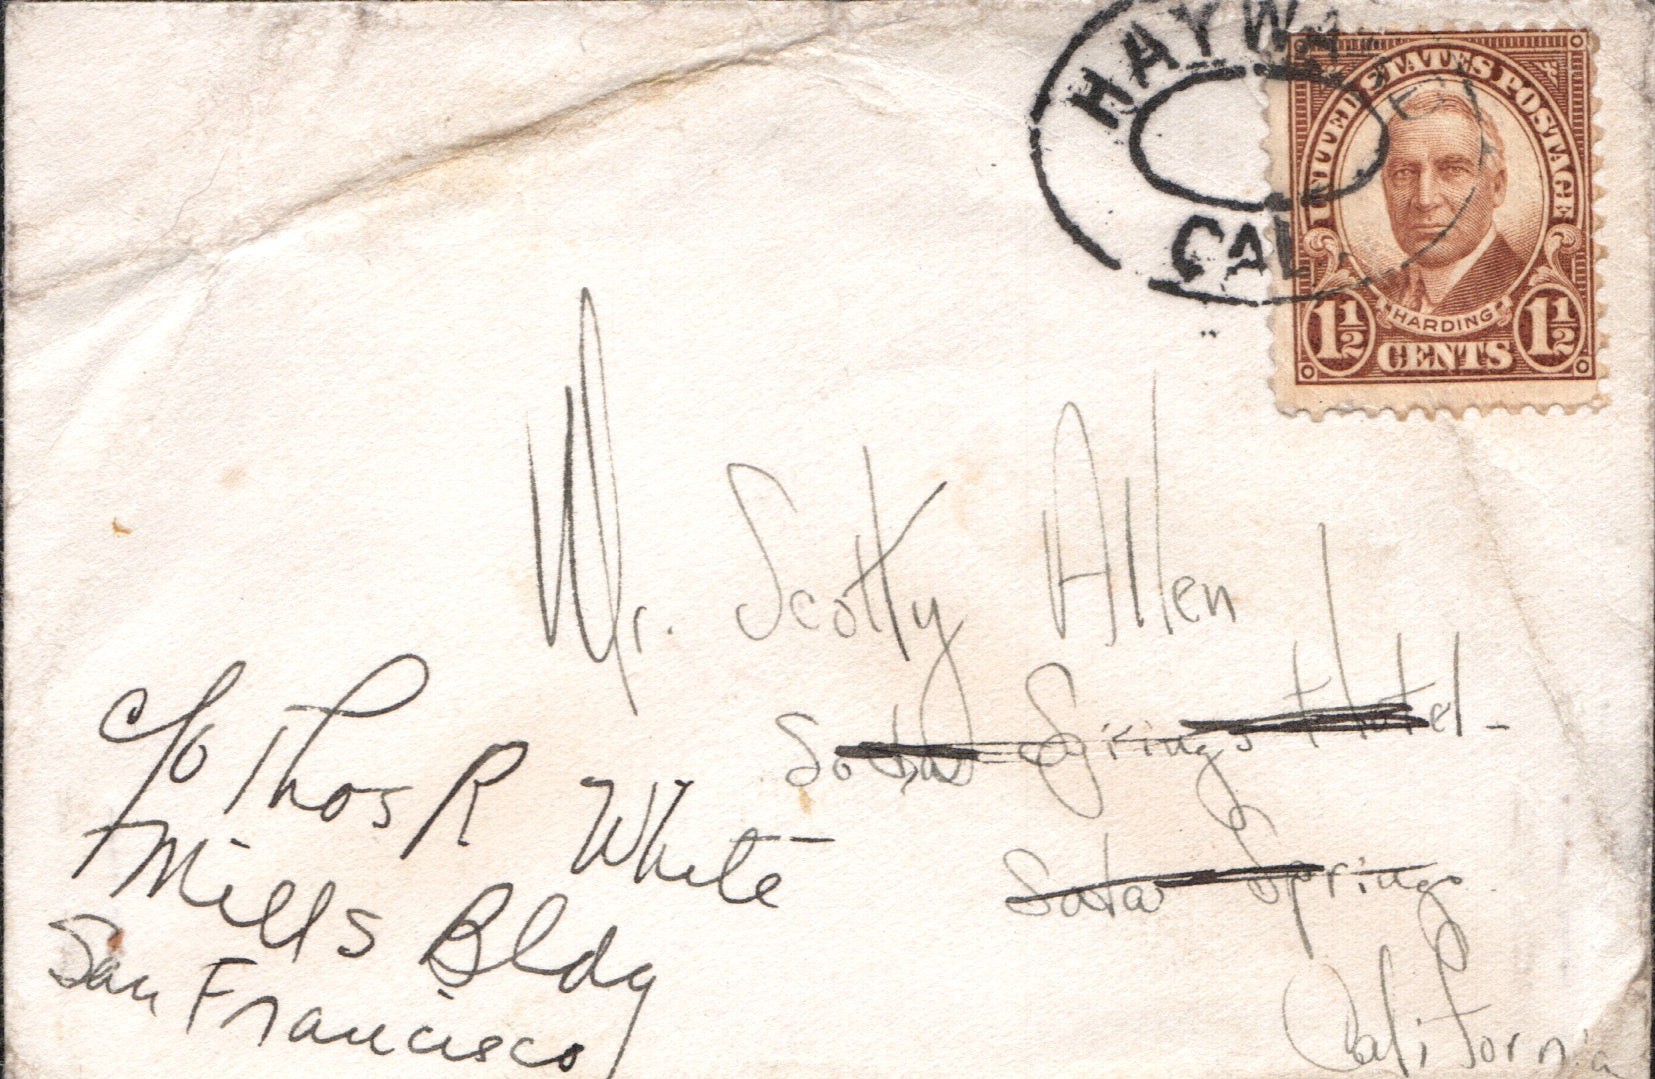 HAYWA
CAL.
UNITED STATES POSTAGE
HARDING
1½ CENTS 1½
Mr. Scotty Allen
Springs Hotel -
Springs
California
c/o Thos R White
Mills Bldg
San Francisco